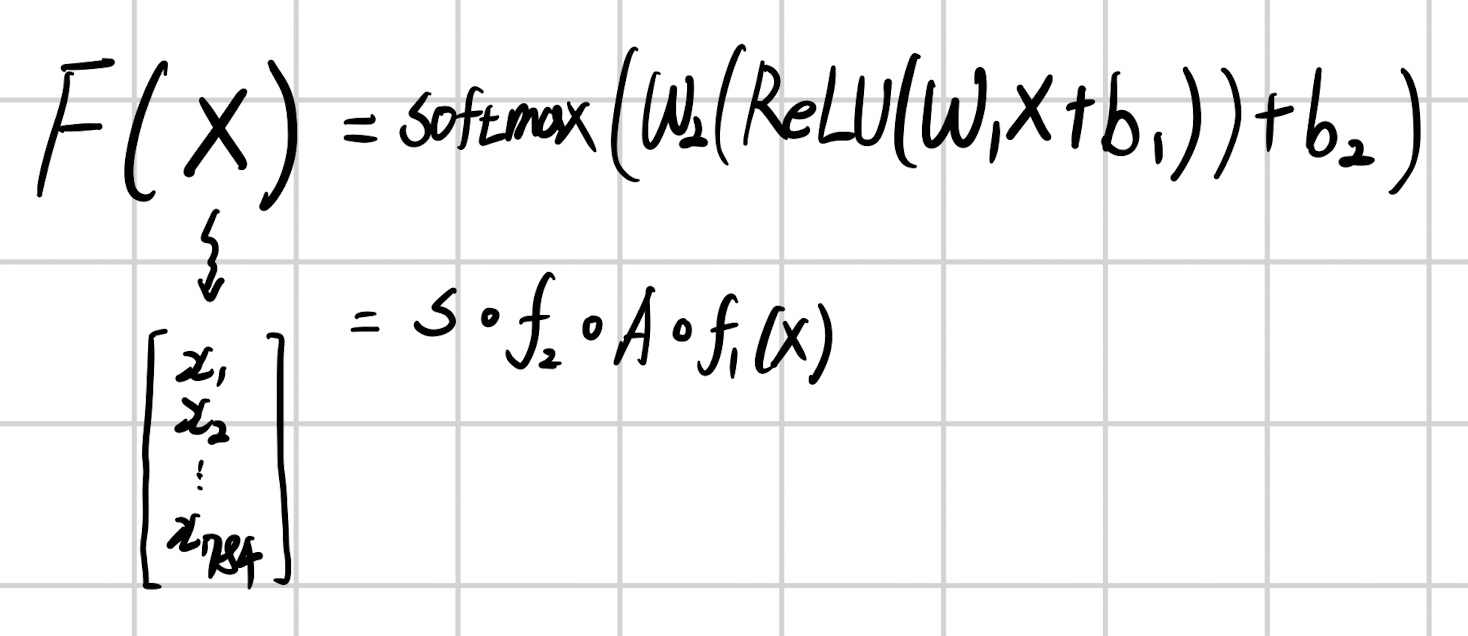 F(X) = softmax(W₂(ReLU(W₁X+b₁))+b₂)
= S∘f₂∘A∘f₁(X)
x₁
x₂
⋮
x₇₈₄